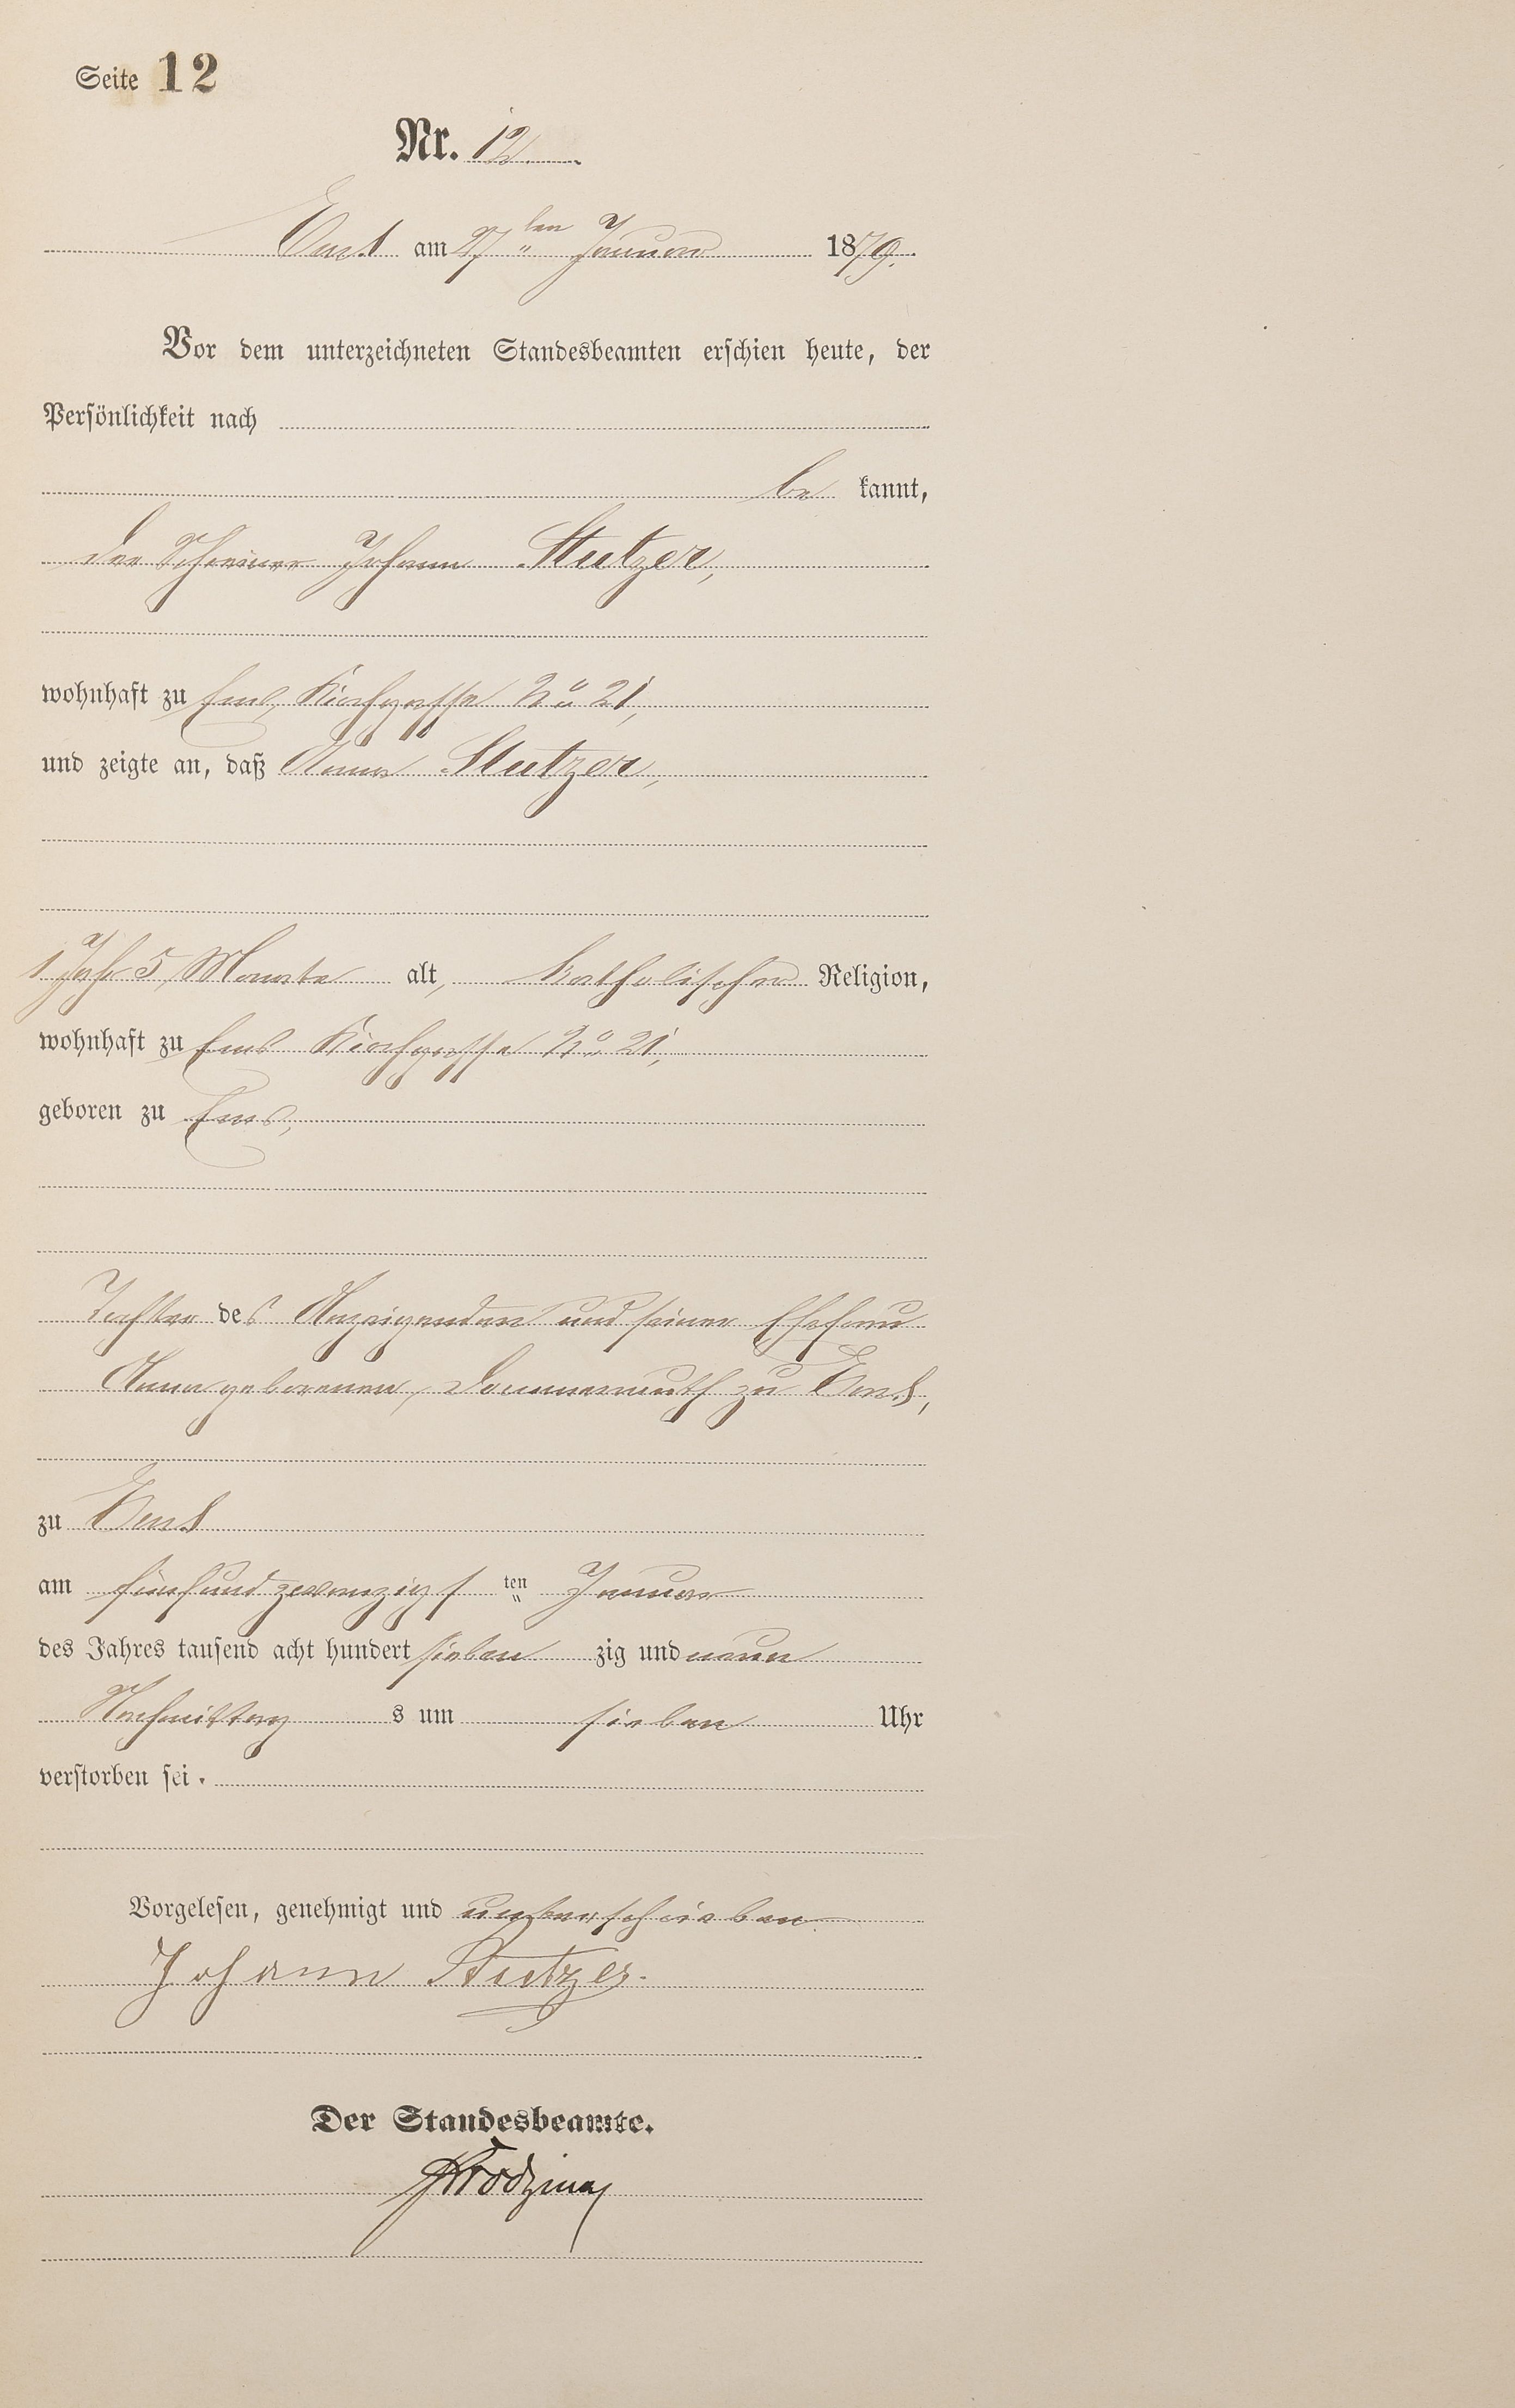 Seite 12
Nr. 12.
Ems am 27ten Januar 1879.
Vor dem unterzeichneten Standesbeamten erschien heute, der
Persönlichkeit nach
be kannt,
der Schreiner Johann Stutzer,
wohnhaft zu Ems, Kirchgasse No 21,
und zeigte an, daß Anna Stutzer,
1 Jahr 5 Monate alt, katholischer Religion,
wohnhaft zu Ems Kirchgasse No 21,
geboren zu Ems,
Tochter des Anzeigenden und seiner Ehefrau
Anna geborenen Dommermuth zu Ems,
zu Ems
am fünfundzwanzigs ten Januar
des Jahres tausend acht hundert sieben zig und neun
Nachmittag s um sieben Uhr
verstorben sei.
Vorgelesen, genehmigt und unterschrieben
Johann Stutzer.
Der Standesbeamte.